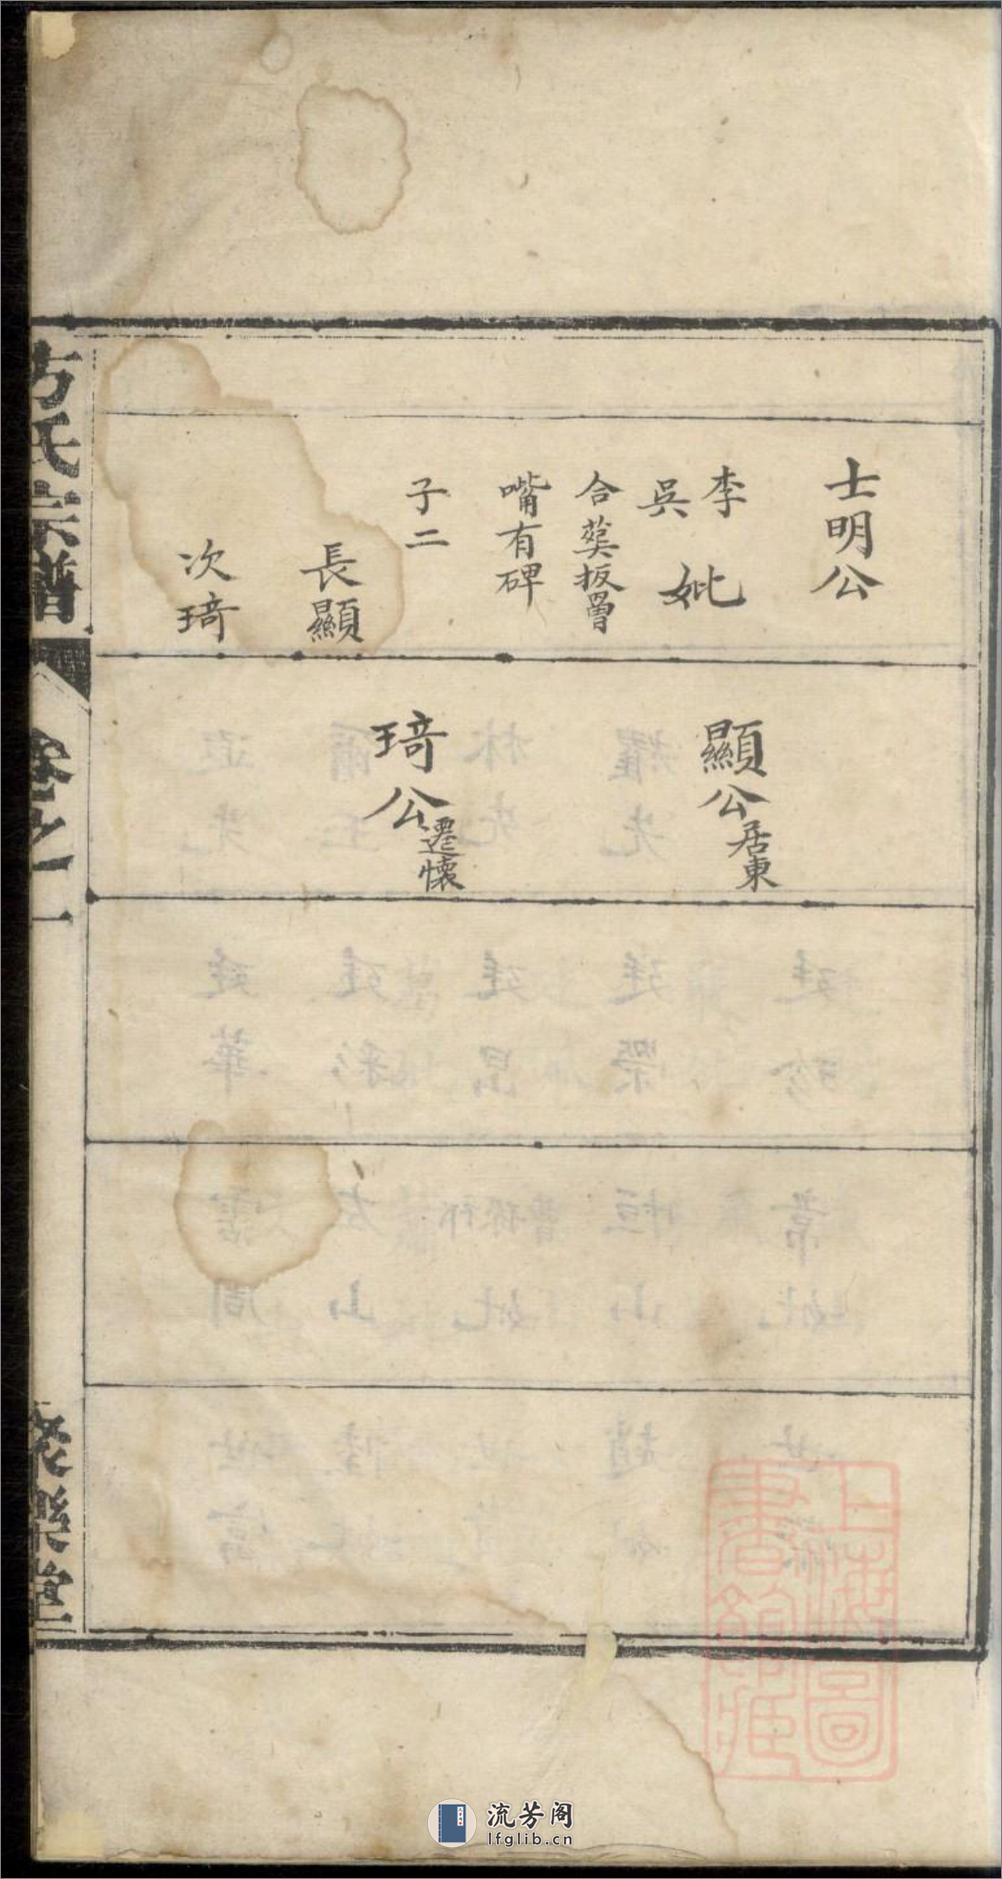 士明公
李
吳
妣
合塟扳罾
嘴有碑
子二
長顯
次琦
顯公居東
琦公遷懷
方氏宗譜
卷之一
樂堂
上海圖書館藏
流芳阁
lfglib.cn